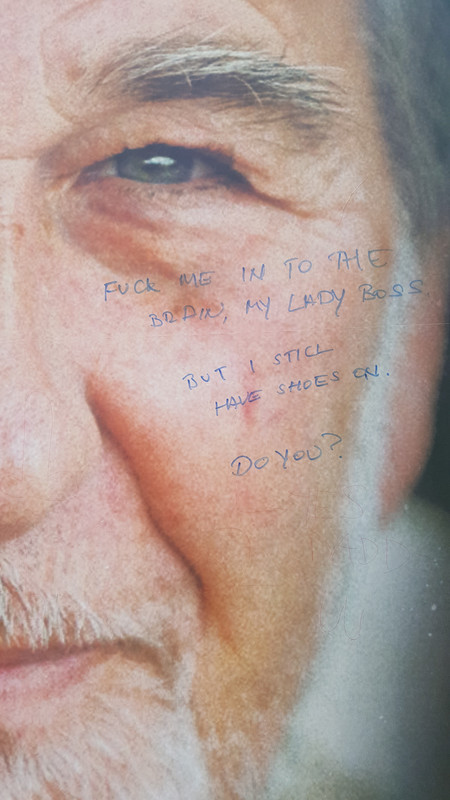 FUCK ME IN TO THE
BRAIN, MY LADY BOSS
BUT I STILL
HAVE SHOES ON.
DO YOU?